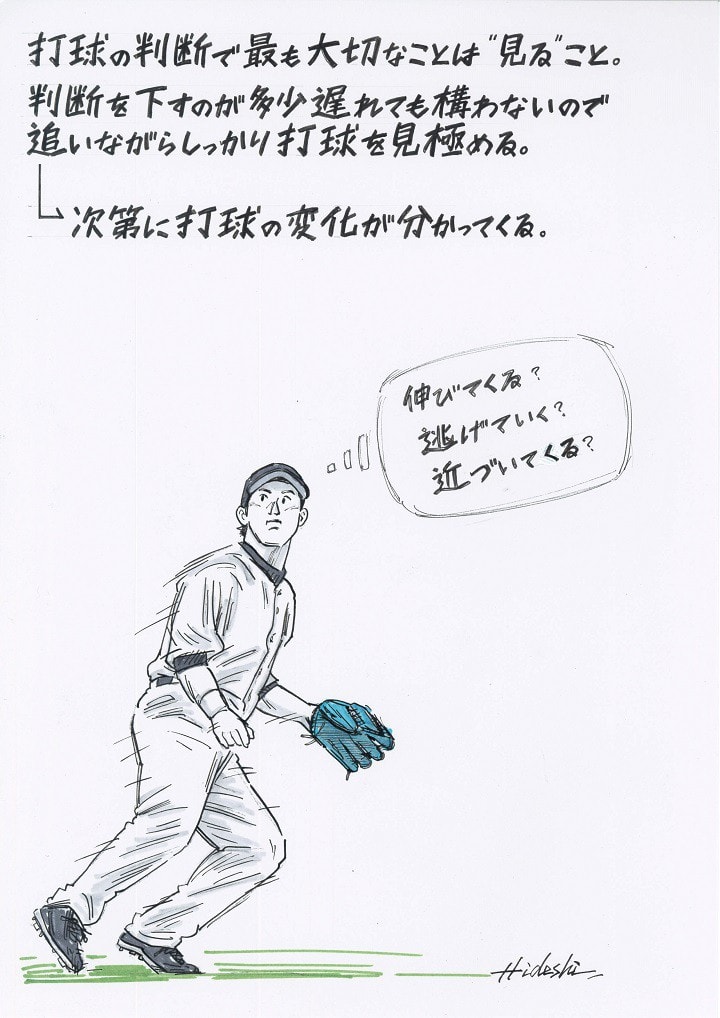 打球の判断で最も大切なことは"見る"こと。
判断を下すのが多少遅れても構わないので
追いながらしっかり打球を見極める。
次第に打球の変化が分かってくる。
伸びてくる?
逃げていく?
近づいてくる?
Hideshi